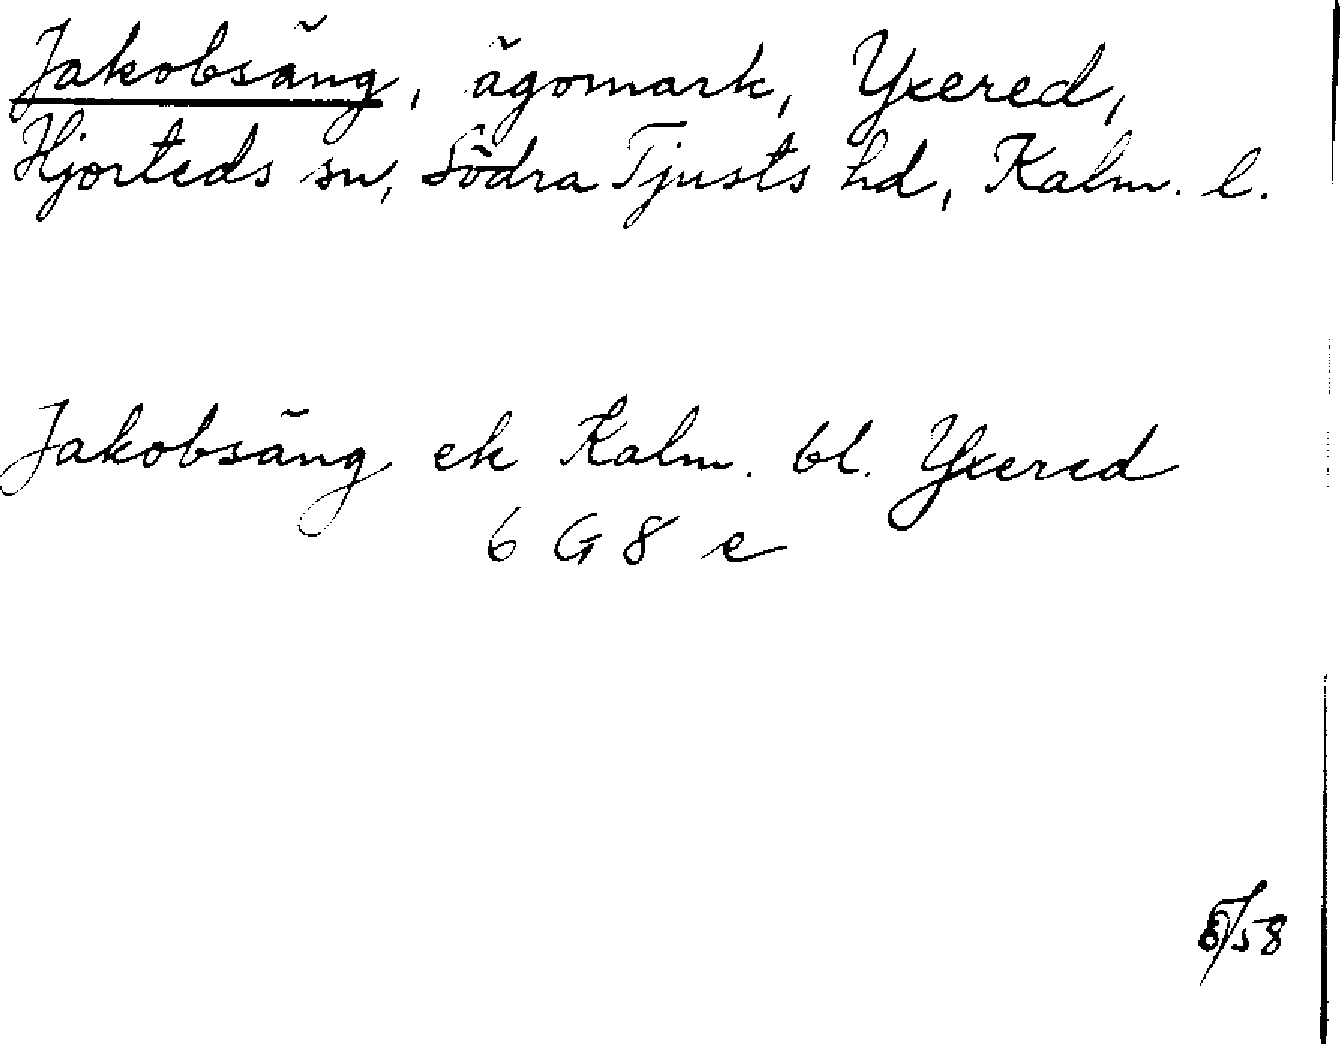 Jakobsäng, ägomark, Yxered,
Hjorteds sn, Södra Tjusts hd, Kalm. l.
Jakobsäng ek Kalm. bl. Yxered
6 G 8 e
/58